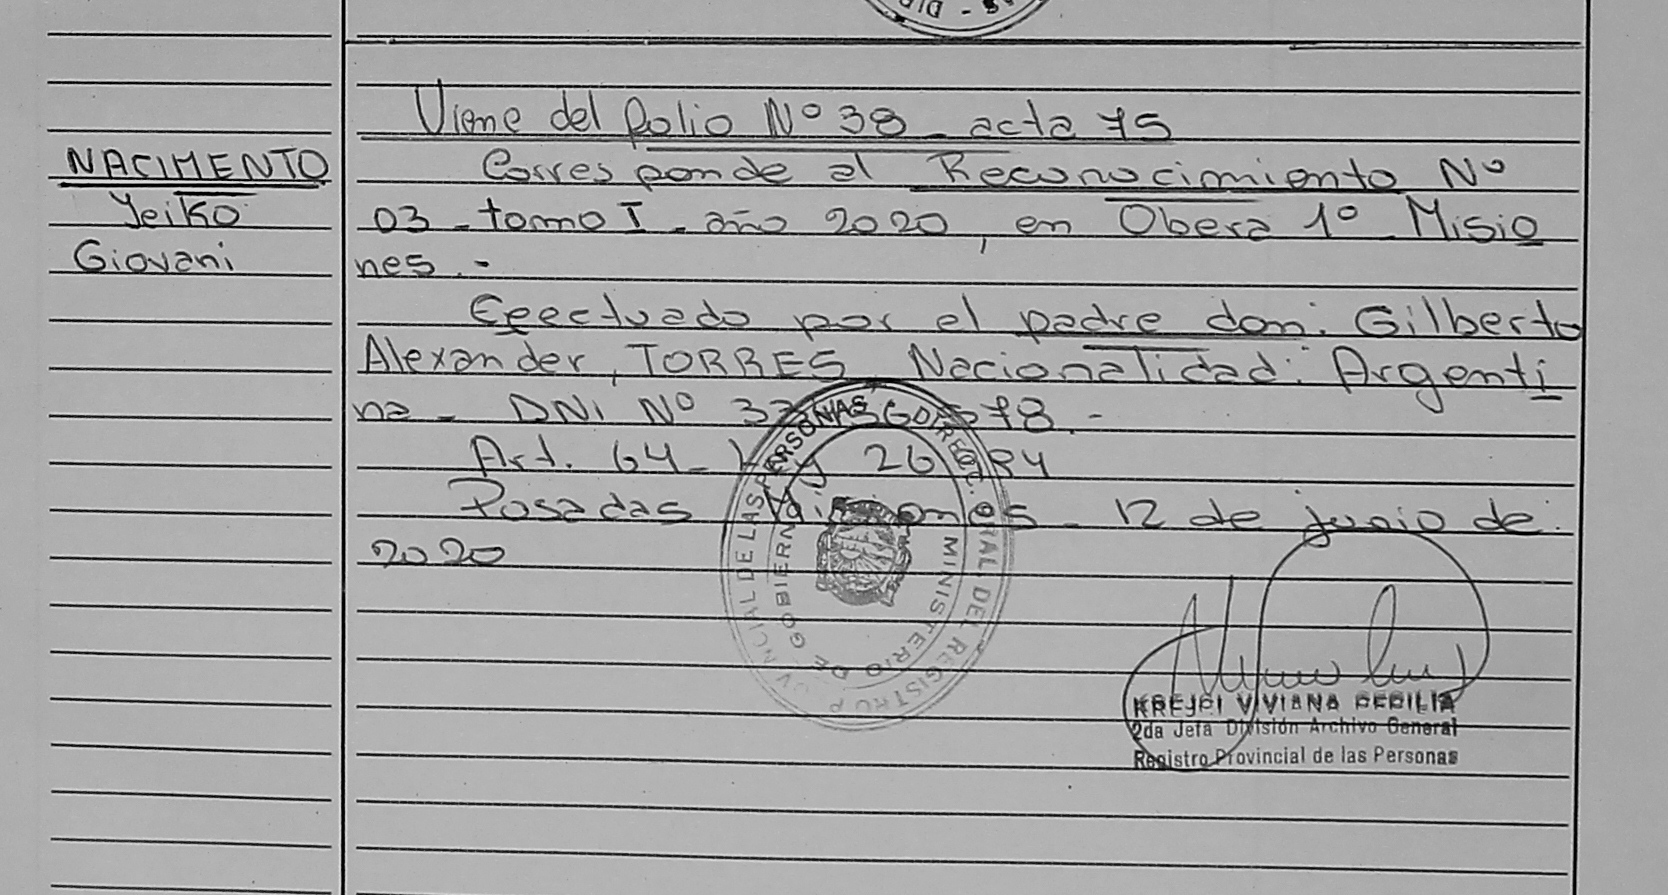 Viene del folio Nº 38 - acta 75
NACIMENTO
Yeiko
Giovani
Corresponde al Reconocimiento Nº
03 - tomo I - año 2020, en Obera 1º - Misio
nes.-
Efectuado por el padre don: Gilberto
Alexander, TORRES. Nacionalidad: Argenti
na - DNI Nº
Art. 64 - Ley 26
Posadas Misiones - 12 de junio de
2020
REGISTRO PROVINCIAL DE LAS PERSONAS
DIREC. GRAL. DEL
MINISTERIO DE GOBIERNO
KREJCI VIVIANA CECILIA
2da Jefa División Archivo General
Registro Provincial de las Personas